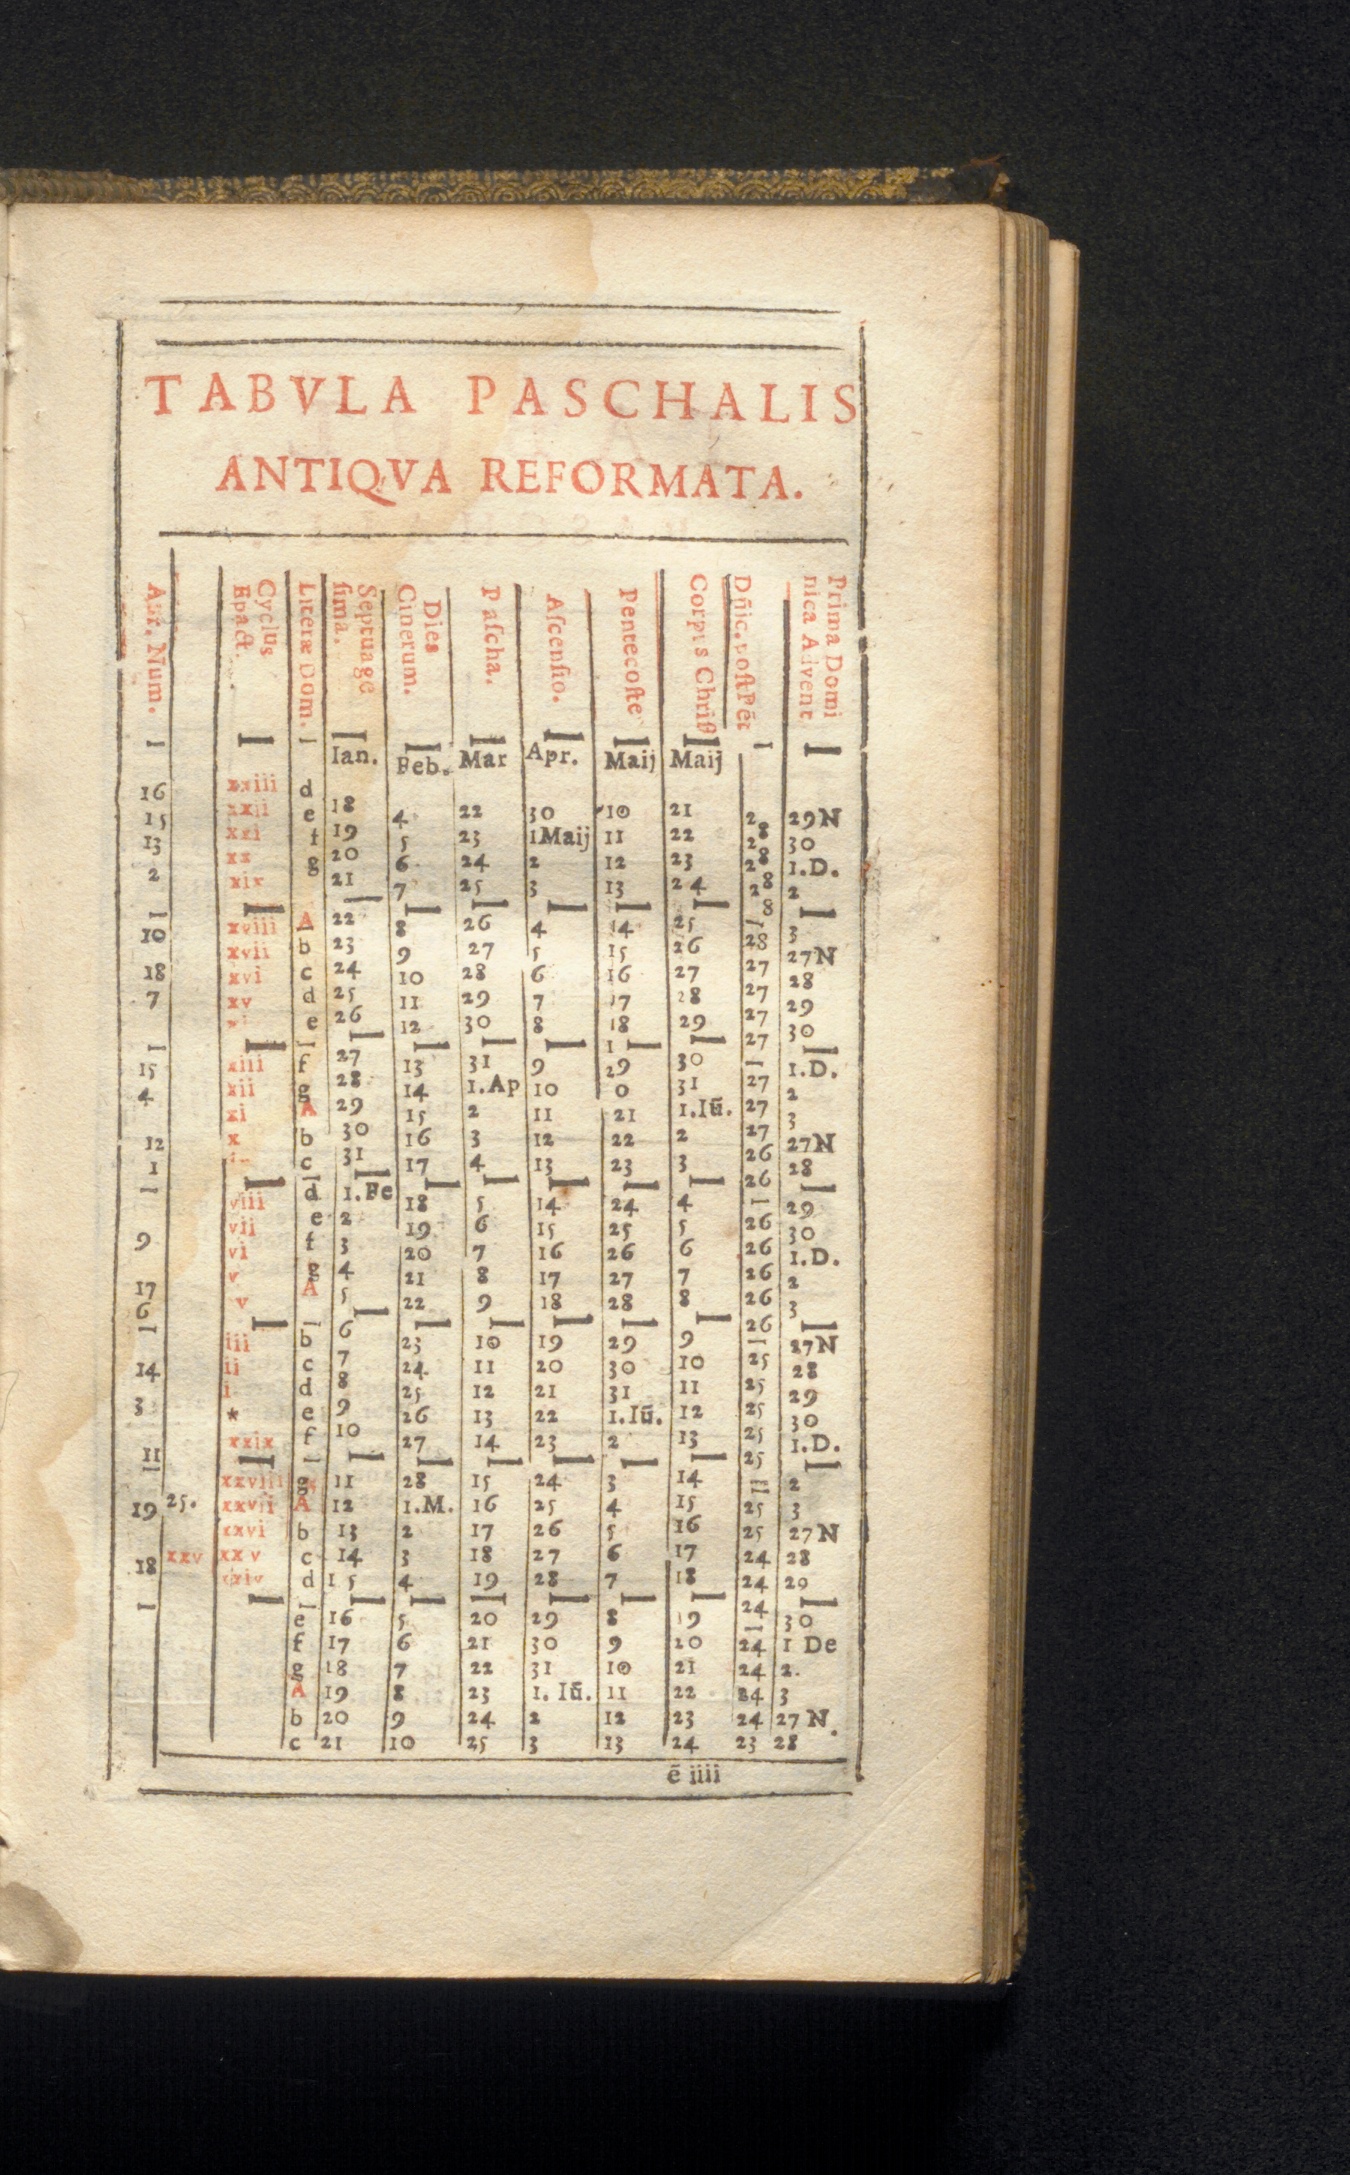 TABVLA PASCHALIS
ANTIQVA REFORMATA.
Aur. Nũm. Cyclus Epact. Literæ Dom. Septuage ſima. Dies Cinerum. Paſcha. Aſcenſio. Pentecoſte Corpus Chriſt Dñic. poſt Pẽt Prima Domi nica Advent
Ian. Feb. Mar Apr. Maij Maij
16 xxiii d 18 4 22 30 10 21 28 29N
15 xxii e 19 5 23 1Maij 11 22 28 30
13 xxi f 20 6 24 2 12 23 28 1.D.
2 xx g 21 7 25 3 13 24 28 2
xix
xviii A 22 8 26 4 14 25 28 3
10 xvii b 23 9 27 5 15 26 27 27N
18 xvi c 24 10 28 6 16 27 27 28
7 xv d 25 11 29 7 17 28 27 29
e 26 12 30 8 18 29 27 30
15 xiii f 27 13 31 9 19 30 27 1.D.
4 xii g 28 14 1.Ap 10 20 31 27 2
xi A 29 15 2 11 21 1.Iũ. 27 3
12 x b 30 16 3 12 22 2 26 27N
1 c 31 17 4 13 23 3 26 28
viii d 1.Fe 18 5 14 24 4 26 29
9 vii e 2 19 6 15 25 5 26 30
vi f 3 20 7 16 26 6 26 1.D.
17 v g 4 21 8 17 27 7 26 2
6 v A 5 22 9 18 28 8 26 3
iii b 6 23 10 19 29 9 25 27N
14 ii c 7 24 11 20 30 10 25 28
i d 8 25 12 21 31 11 25 29
3 * e 9 26 13 22 1.Iũ. 12 25 30
11 xxix f 10 27 14 23 2 13 25 1.D.
xxviii g 11 28 15 24 3 14 2
19 25. xxvii A 12 1.M. 16 25 4 15 25 3
xxvi b 13 2 17 26 5 16 25 27N
18 xxv xxv c 14 3 18 27 6 17 24 28
xxiv d 15 4 19 28 7 18 24 29
e 16 5 20 29 8 19 24 30
f 17 6 21 30 9 20 24 1 De
g 18 7 22 31 10 21 24 2.
A 19 8 23 1. Iũ. 11 22 24 3
b 20 9 24 2 12 23 24 27 N.
c 21 10 25 3 13 24 23 28
ẽ iiii